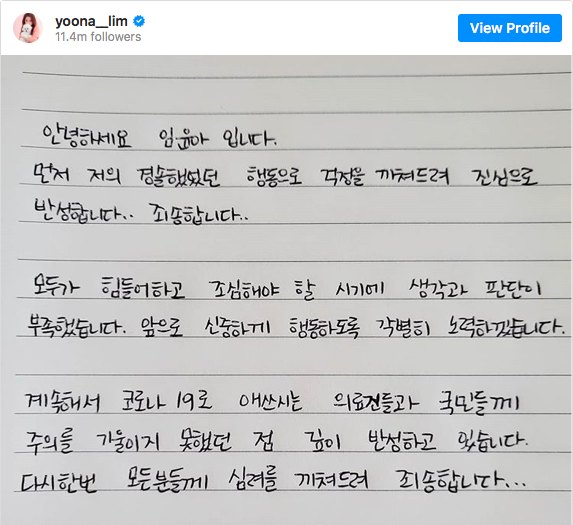 yoona__lim
11.4m followers
View Profile
안녕하세요 임윤아 입니다.
먼저 저의 경솔했었던 행동으로 걱정을 끼쳐드려 진심으로
반성합니다.. 죄송합니다..
모두가 힘들어하고 조심해야 할 시기에 생각과 판단이
부족했습니다. 앞으로 신중하게 행동하도록 각별히 노력하겠습니다.
계속해서 코로나 19로 애쓰시는 의료진들과 국민들께
주의를 기울이지 못했던 점 깊이 반성하고 있습니다.
다시한번 모든분들께 심려를 끼쳐드려 죄송합니다...